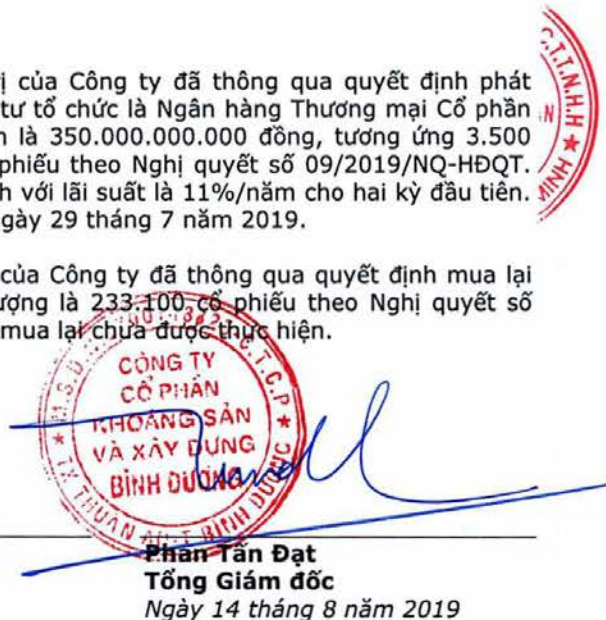 ị của Công ty đã thông qua quyết định phát
tư tổ chức là Ngân hàng Thương mại Cổ phần
n là 350.000.000.000 đồng, tương ứng 3.500
phiếu theo Nghị quyết số 09/2019/NQ-HĐQT.
h với lãi suất là 11%/năm cho hai kỳ đầu tiên.
gày 29 tháng 7 năm 2019.
của Công ty đã thông qua quyết định mua lại
ượng là 233.100 cổ phiếu theo Nghị quyết số
mua lại chưa được thực hiện.
C.T.T.N.H.H ★
MINH
M.S.D
C.T.C.P ★
CÔNG TY
CỔ PHẦN
KHOÁNG SẢN
VÀ XÂY DỰNG
BÌNH DƯƠNG
★ TX THUẬN AN-T BÌNH DƯƠNG
Phan Tấn Đạt
Tổng Giám đốc
Ngày 14 tháng 8 năm 2019